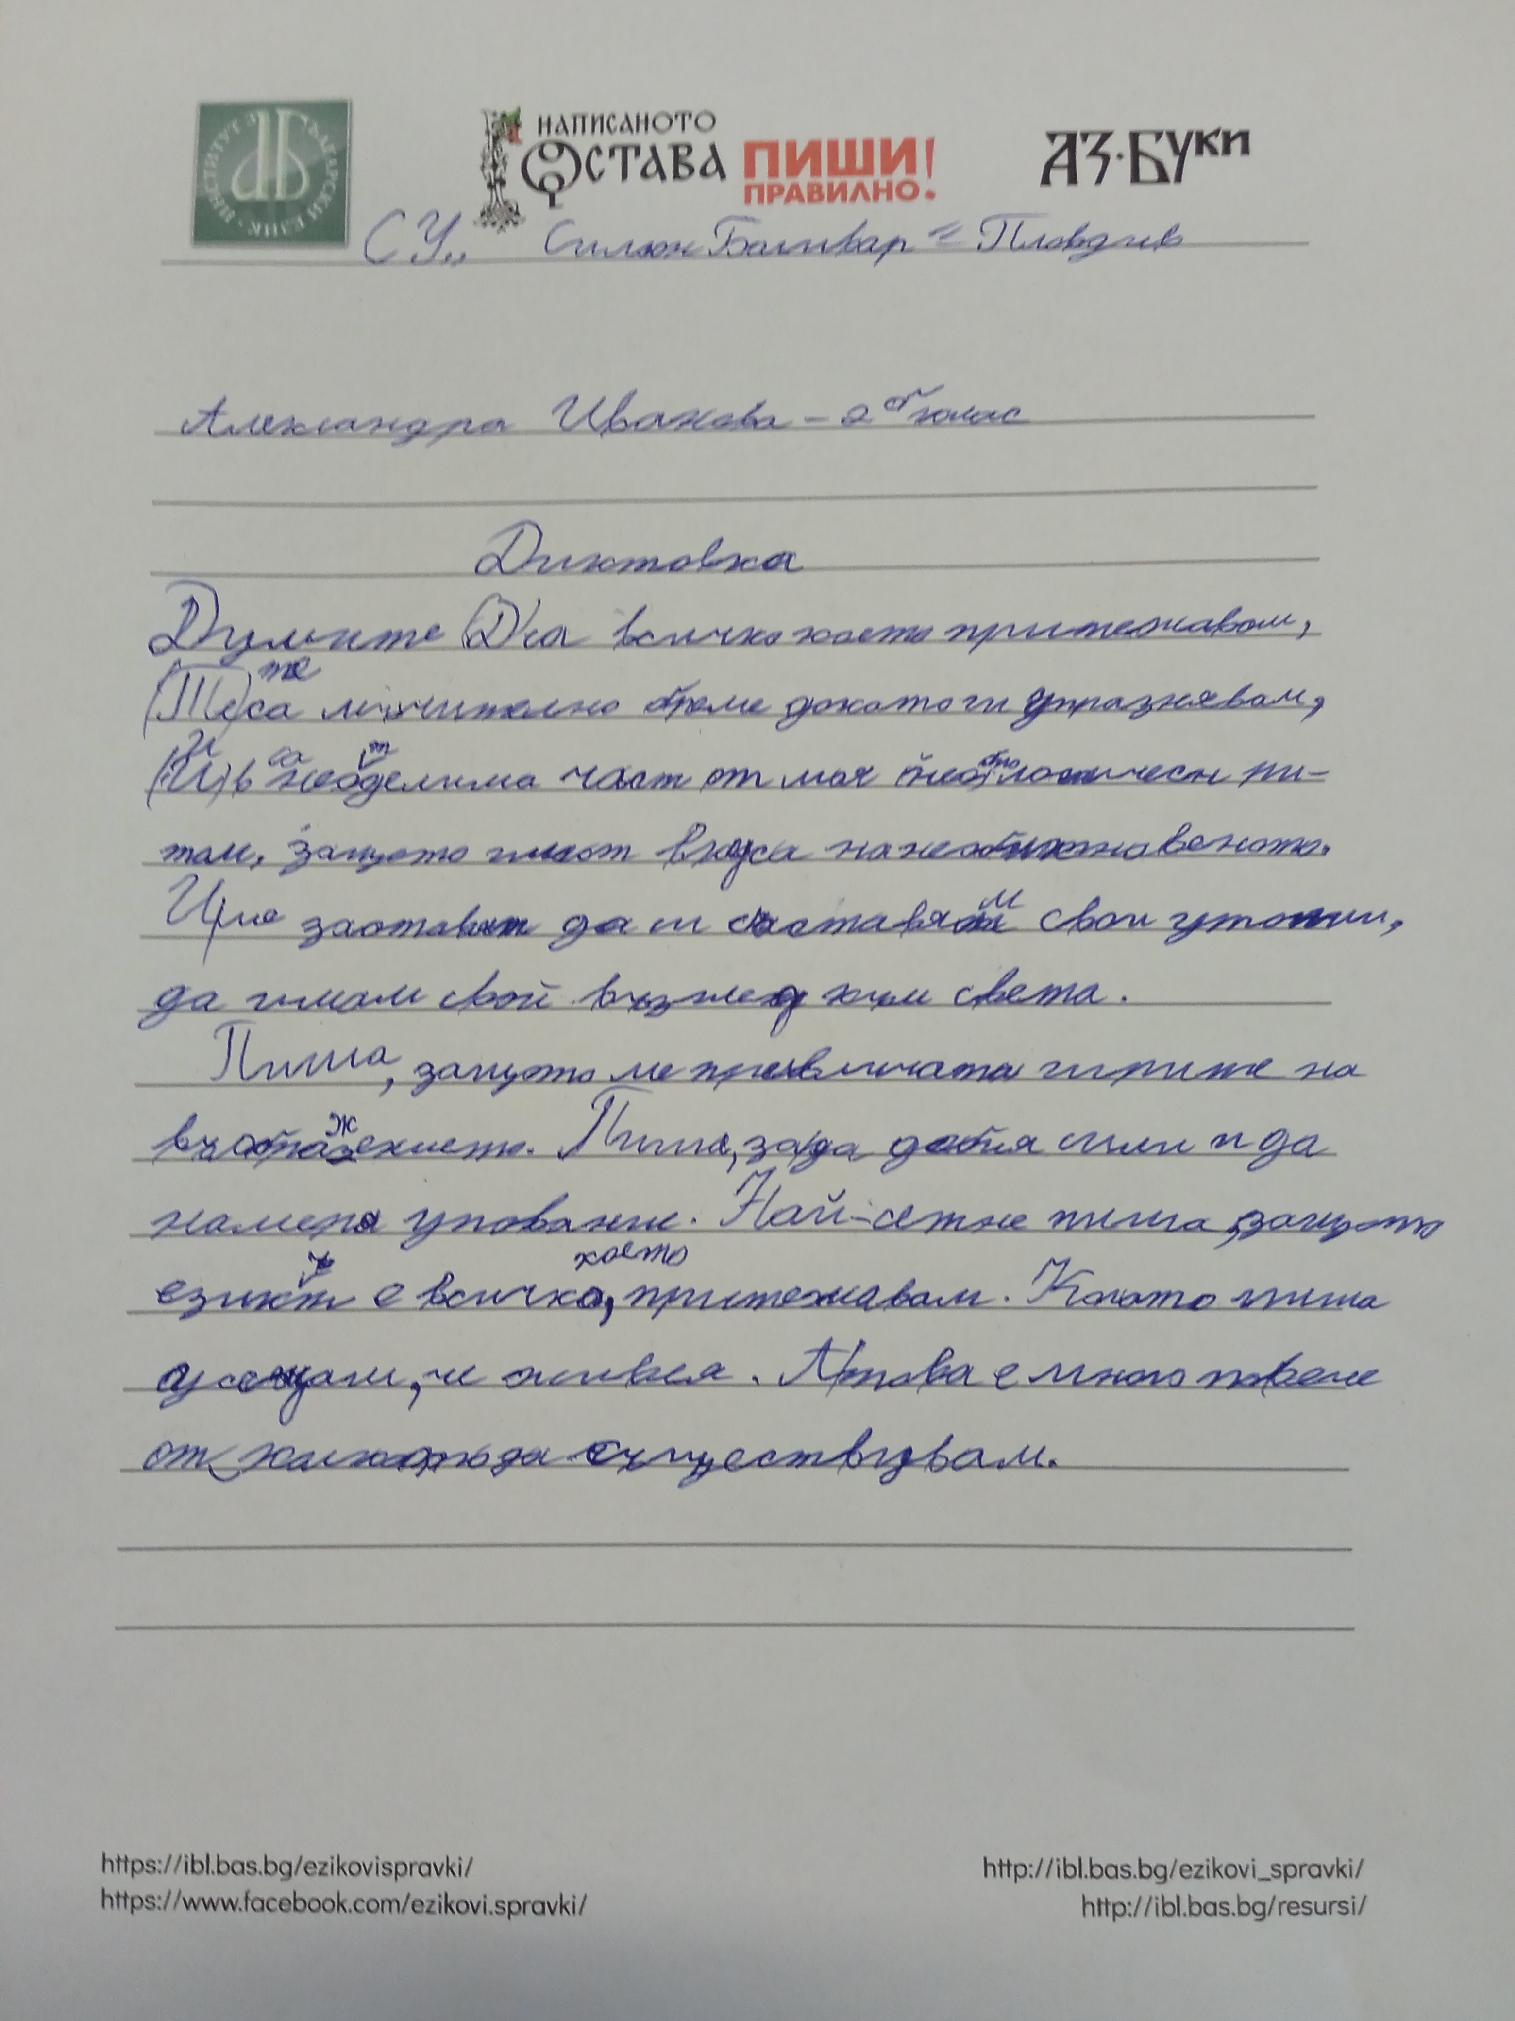 ИНСТИТУТ ЗА БЪЛГАРСКИ ЕЗИК
НАПИСАНОТО
ОСТАВА
ПИШИ
ПРАВИЛНО!
АЗ·БУКИ
СУ „ Симон Боливар “ Пловдив
Александра Иванова – 2 клас
Диктовка
Думите са всичко което притежавам,
те са мъчително бреме докато ги упразнявам,
и са неотделима част от моя биологичен ри-
там, защото имат вкуса на необикновеното.
Ще заставят да си съставям свои утопии,
да имам свой възглед към света.
Пиша, защото ме привличата игрите на
въображението. Пиша, за да добия сили и да
намеря упование. Най-сетне пиша, защото
езикът е всичко, което притежавам. Когато пиша
усещам, че живея. А това е много повече
от колкото да съществувам.
https://ibl.bas.bg/ezikovispravki/
http://ibl.bas.bg/ezikovi_spravki/
https://www.facebook.com/ezikovi.spravki/
http://ibl.bas.bg/resursi/